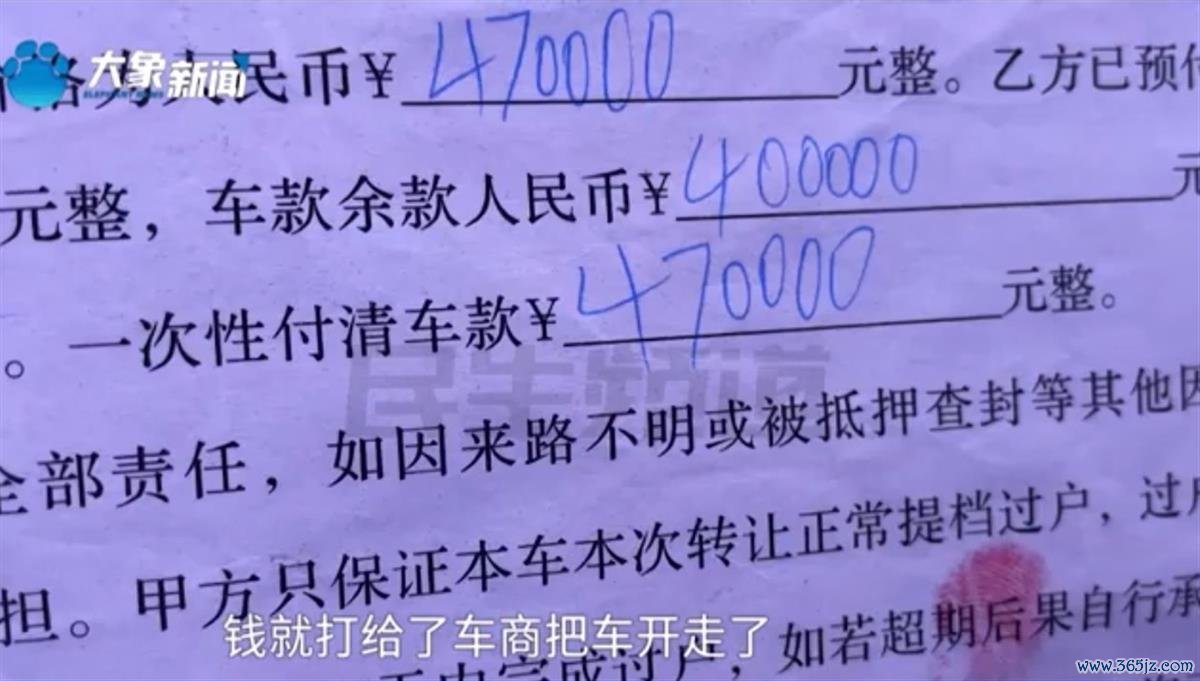 大象新闻
ELEPHANT NEWS
民币¥470000元整。乙方已预付
元整，车款余款人民币¥400000元
。一次性付清车款¥470000元整。
民生频道
全部责任，如因来路不明或被抵押查封等其他因
担。甲方只保证本车本次转让正常提档过户，过户
内完成过户，如若超期后果自行承
钱就打给了车商把车开走了
www.365jz.com